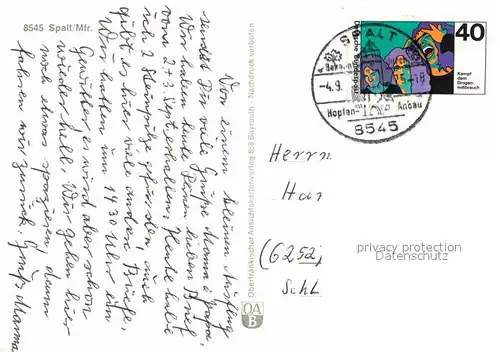 8545 Spalt/Mfr.
Von einem kleinen Ausflug
sendet Dir viele Grüße Mama & Papa.
Wir haben heute Deinen lieben Brief
vom 2+3. Sept. erhalten. Heute habe
ich 2 Steinpilz gefunden, auch
gibt es hier viele andere Pilze.
Wir hatten um 14.30 Uhr ein
Gewitter es wird aber schon
wieder hell. Wir gehen hier
noch etwas spazieren, dann
fahren wir zurück. Gruß Mama
Oberfränkischer Ansichtskartenverlag 858 Bayreuth · Nachdruck verboten
OA
B
SPALT
-4.9.
-18
Hopfen-
Anbau
8545
Deutsche Bundespost
40
Kampf
dem
Drogen-
mißbrauch
Herrn
Har
(6252)
Schl
privacy protection
Datenschutz